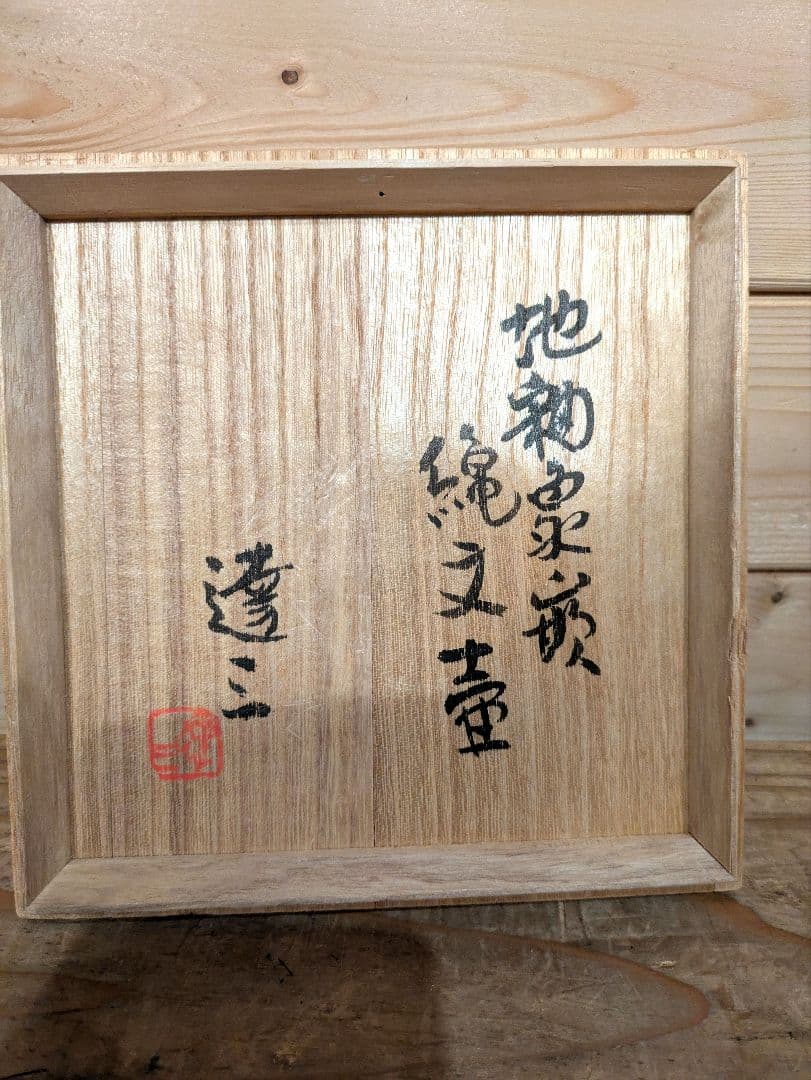 地釉象嵌
縄文壷
達三